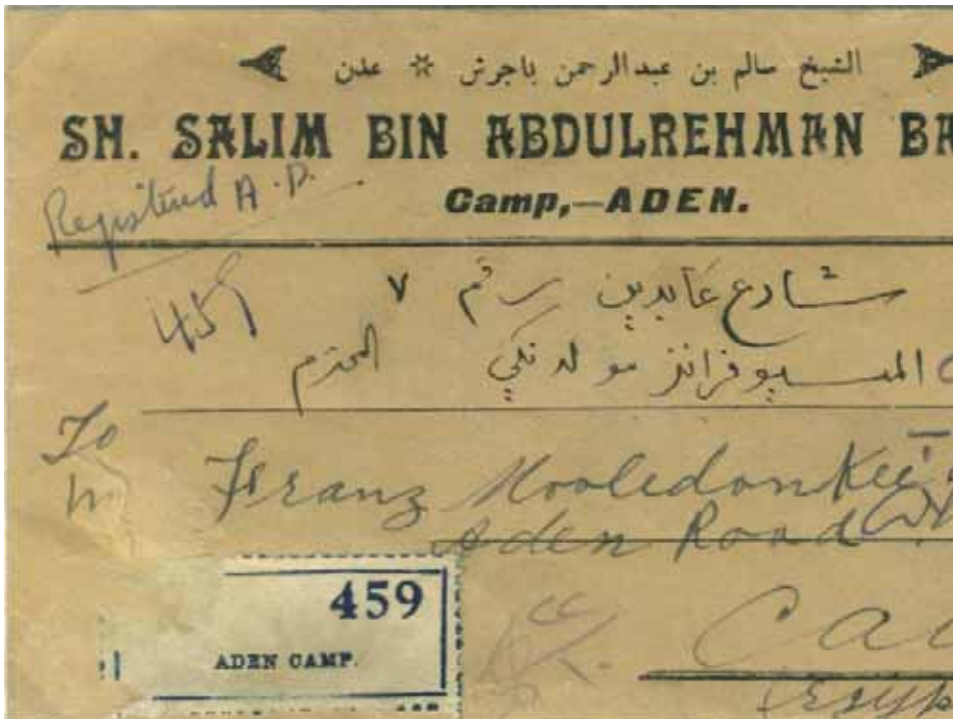 الشيخ سالم بن عبدالرحمن باجرش * عدن
SH. SALIM BIN ABDULREHMAN BA
Camp,—ADEN.
Registered A.D.
459
شارع عابدين رقم ٧
المسيو فرانز مولدنكي المحترم
To
Franz Mooledonkee
Aden Road
459
ADEN CAMP.
Ca
Egyp